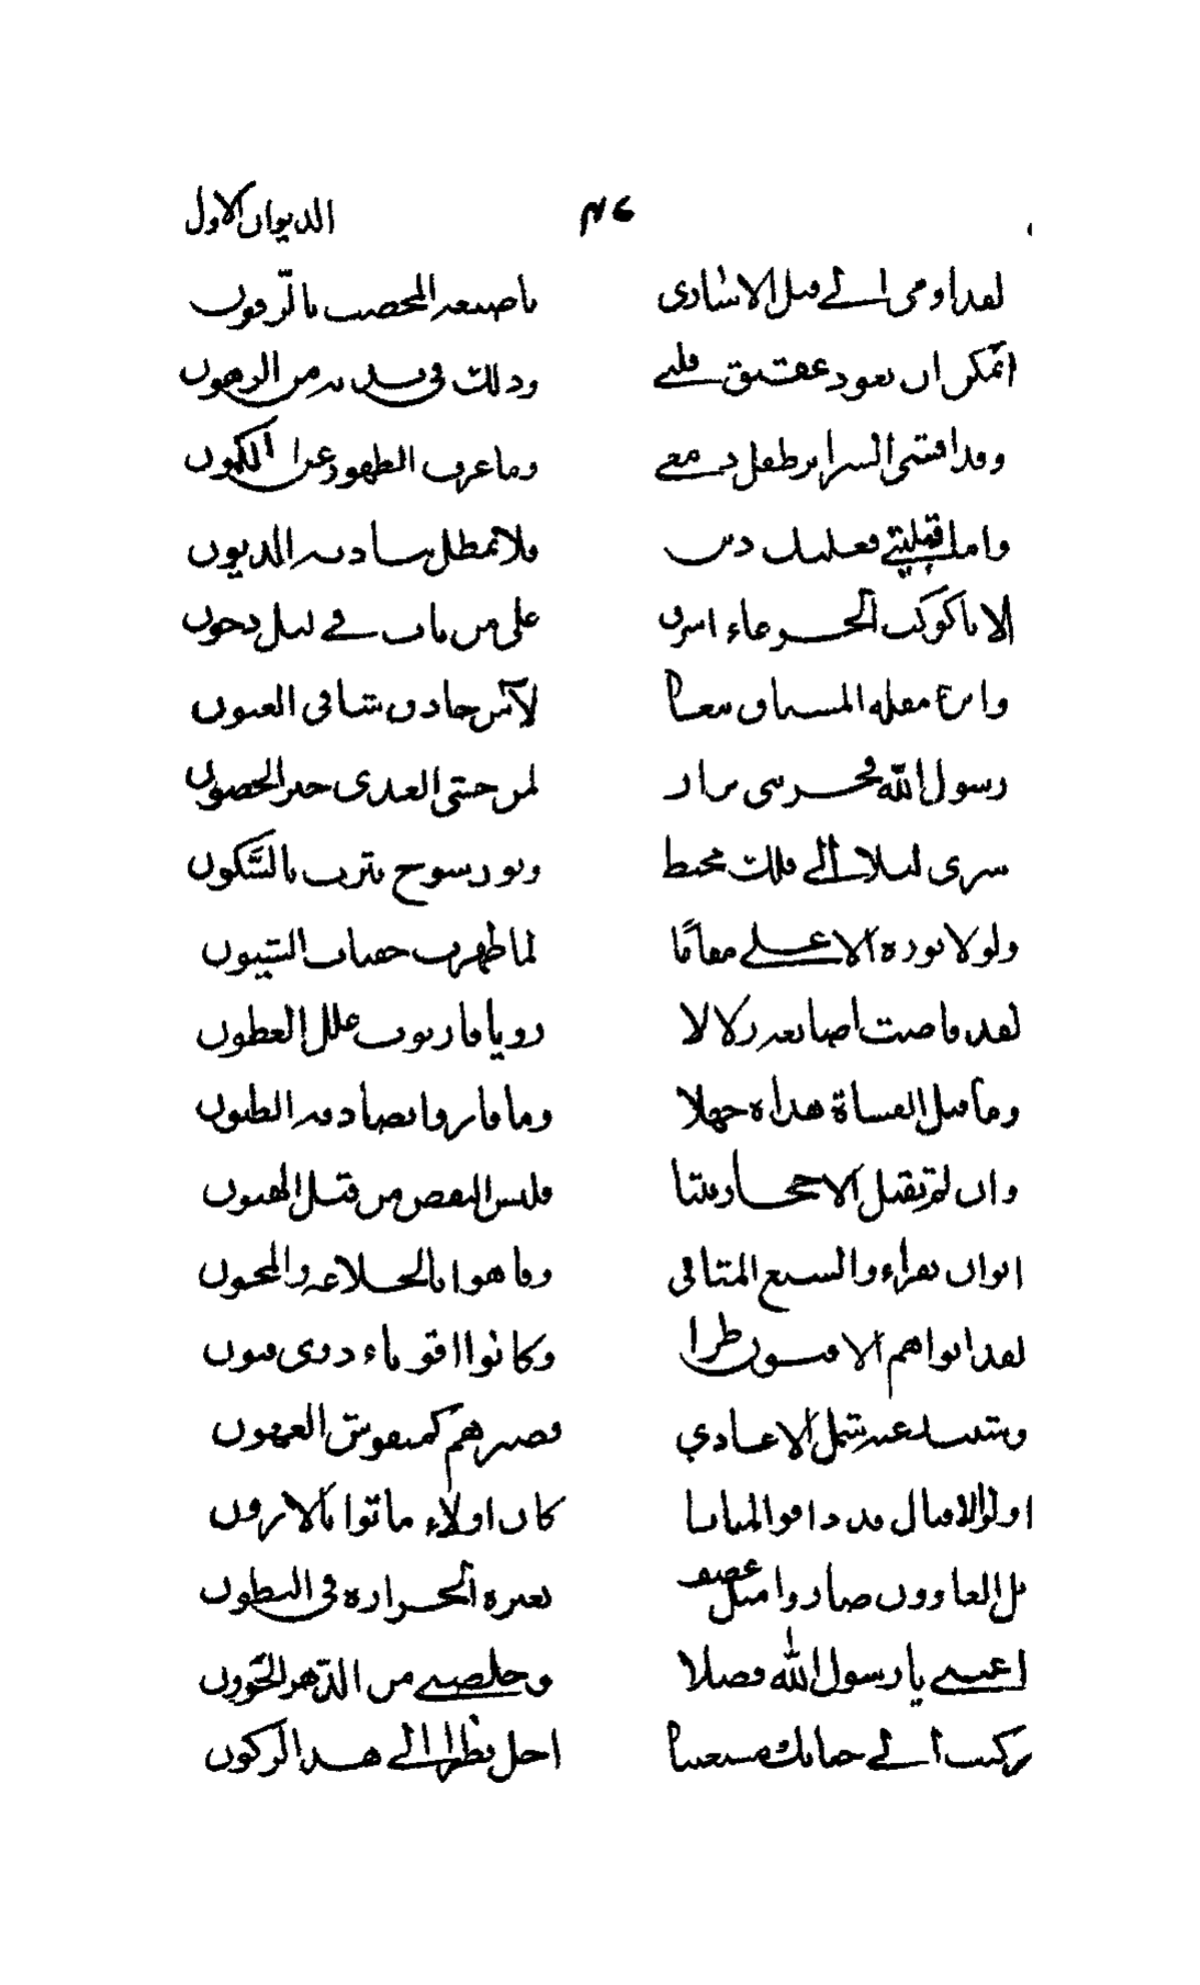 الديوان الاول ٤٦
لقد اومى الي قبل الاشارى باصبعه المخصب بالرقون
ايمكن ان يعود عقيق قلبي وذلك في يديه من الرهون
وقد افشى السراير طفل دمعي وما عرف الظهور عن الكمون
واما قبلتي فعليك دين فلا تمطل بسادته الديون
الا يا كوكب الحسر جاء اشرق على من بات في ليل دجون
وامن مقلة المشتاق لاثمن جادن شافى العيون
رسول الله فخر بني نزار لمن حتى العدى خير الحصون
سرى ليلا الى فلك محيط ونور سوح يثرب بالسكون
ولولا نوره الاعلى مقاما لما ظهرت التيون
لقد فاضت اصابعه زلالا رويا فارتوت غلل العطون
وما قبل القساة هداه جهلا وما فازوا بصادقة الظنون
وان لم تقبل الاحجار فليس النقص من قبل الهتون
ابوا ان يقراءوا السبع المثاني وفاهوا بالخلاعة والمجون
لقد ابوا هم الاقسون طرا وكانوا اقوياء ذوى متون
وشتت عنه شمل الاعادي فصيرهم كمنفوش العهون
اولو الاقبال قد ذاقوا المنايا كان اولاء ماتوا بالارون
بل الغاوون صاروا مثل عصف بعيره الحرارة في البطون
اعني يا رسول الله فضلا وخلصني من الدهر الخؤون
ركنت الي جنابك مستعينا اجل نظرا الي هذا الركون